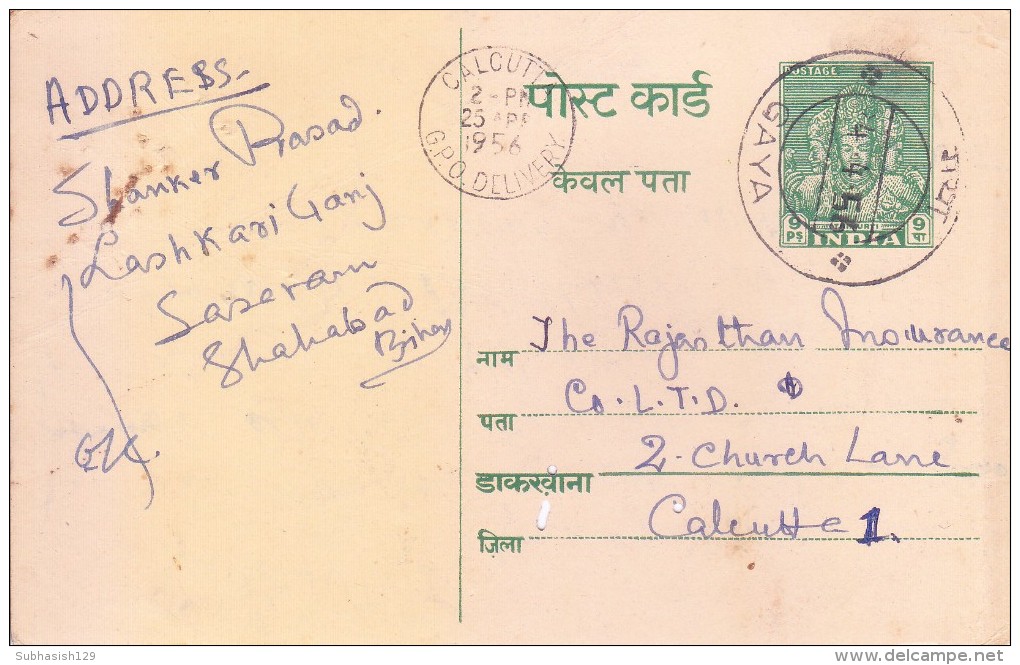 ADDRESS-
Shanker Prasad.
Lashkari Ganj
Sasaram
Shahabad
Bihar
CALCUTTA
2-PM
25 APR
1956
G.P.O. DELIVERY
पोस्ट कार्ड
केवल पता
POSTAGE
9 PS
INDIA
9 पा
GAYA
गया
नाम The Rajasthan Insurance
पता Co. L.T.D.
2-Church Lane
डाकखाना
जिला Calcutta 1.
Subhasish129
www.delcampe.net